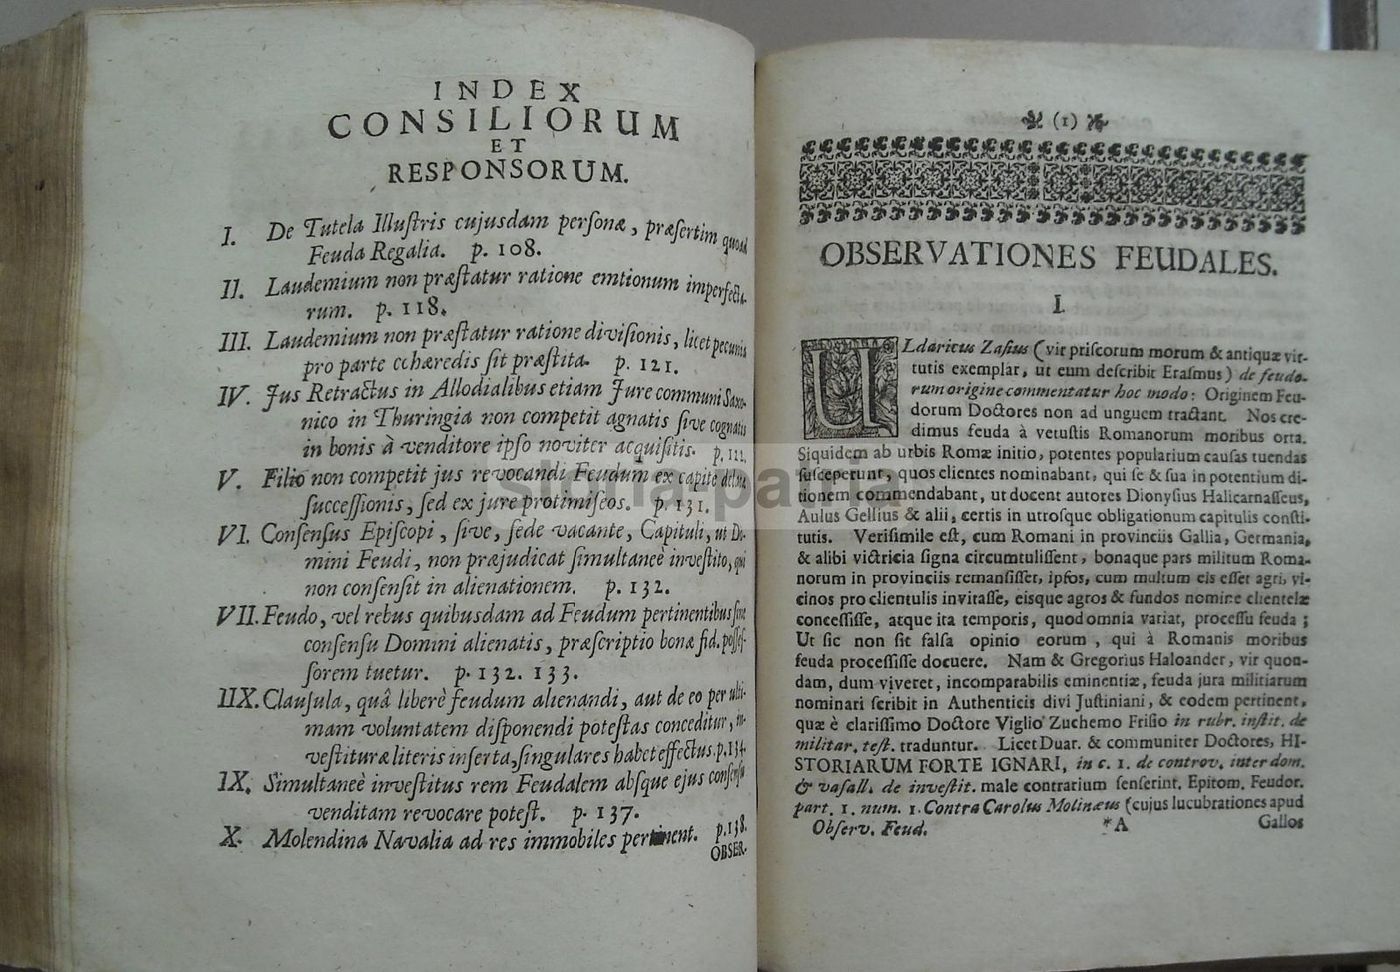 INDEX
CONSILIORUM
ET
RESPONSORUM.
I. De Tutela Illuſtris cujusdam perſonæ, præſertim quoad
Feuda Regalia. p. 108.
II. Laudemium non præſtatur ratione emtionum imperfecta-
rum. p. 118.
III. Laudemium non præſtatur ratione diviſionis, licet pecunia
pro parte cohæredis ſit præſtita. p. 121.
IV. Jus Retractus in Allodialibus etiam Jure communi Saxo-
nico in Thuringia non competit agnatis ſive cognatis
in bonis à venditore ipſo noviter acquiſitis. p. 122.
V. Filio non competit jus revocandi Feudum ex capite
ſucceſſionis, ſed ex jure protimiſeos. p. 131.
VI. Conſenſus Epiſcopi, ſive, ſede vacante, Capituli, ut Do-
mini Feudi, non præjudicat ſimultaneè inveſtito, qui
non conſenſit in alienationem. p. 132.
VII. Feudo, vel rebus quibusdam ad Feudum pertinentibus ſine
conſenſu Domini alienatis, præſcriptio bonæ fid. poſſeſ-
ſorem tuetur. p. 132. 133.
IIX. Clauſula, quâ liberè feudum alienandi, aut de eo per ulti-
mam voluntatem diſponendi poteſtas conceditur, in-
veſtituræ literis inſerta, ſingulares habet effectus. p. 134.
IX. Simultaneè inveſtitus rem Feudalem abſque ejus conſenſu
venditam revocare poteſt. p. 137.
X. Molendina Navalia ad res immobiles pertinent. p. 138.
OBSER-
(1)
OBSERVATIONES FEUDALES.
I.
ULdaricus Zaſius (vir priſcorum morum & antiquæ vir-
tutis exemplar, ut eum deſcribit Eraſmus) de feudo-
rum origine commentatur hoc modo: Originem Feu-
dorum Doctores non ad unguem tractant. Nos cre-
dimus feuda à vetuſtis Romanorum moribus orta.
Siquidem ab urbis Romæ initio, potentes popularium cauſas tuendas
ſuſceperunt, quos clientes nominabant, qui ſe & ſua in potentium di-
tionem commendabant, ut docent autores Dionyſius Halicarnaſſeus,
Aulus Gellius & alii, certis in utroſque obligationum capitulis conſti-
tutis. Veriſimile eſt, cum Romani in provinciis Gallia, Germania,
& alibi victricia ſigna circumtuliſſent, bonaque pars militum Roma-
norum in provinciis remanſiſſet, ipſos, cum multum eis eſſet agri, vi-
cinos pro clientulis invitaſſe, eisque agros & fundos nomine clientelæ
conceſſiſſe, atque ita temporis, quod omnia variat, proceſſu feuda;
Ut ſic non ſit falſa opinio eorum, qui à Romanis moribus
feuda proceſſiſſe docuere. Nam & Gregorius Haloander, vir quon-
dam, dum viveret, incomparabilis eminentiæ, feuda jura militiarum
nominari ſcribit in Authenticis divi Juſtiniani, & eodem pertinent,
quæ è clariſſimo Doctore Viglio Zuchemo Friſio in rubr. inſtit. de
militar. teſt. traduntur. Licet Duar. & communiter Doctores, HI-
STORIARUM FORTE IGNARI, in c. 1. de controv. inter dom.
& vaſall. de inveſtit. male contrarium ſenſerint. Epitom. Feudor.
part. 1. num. 1. Contra Carolus Molinæus (cujus lucubrationes apud
Obſerv. Feud. *A Gallos